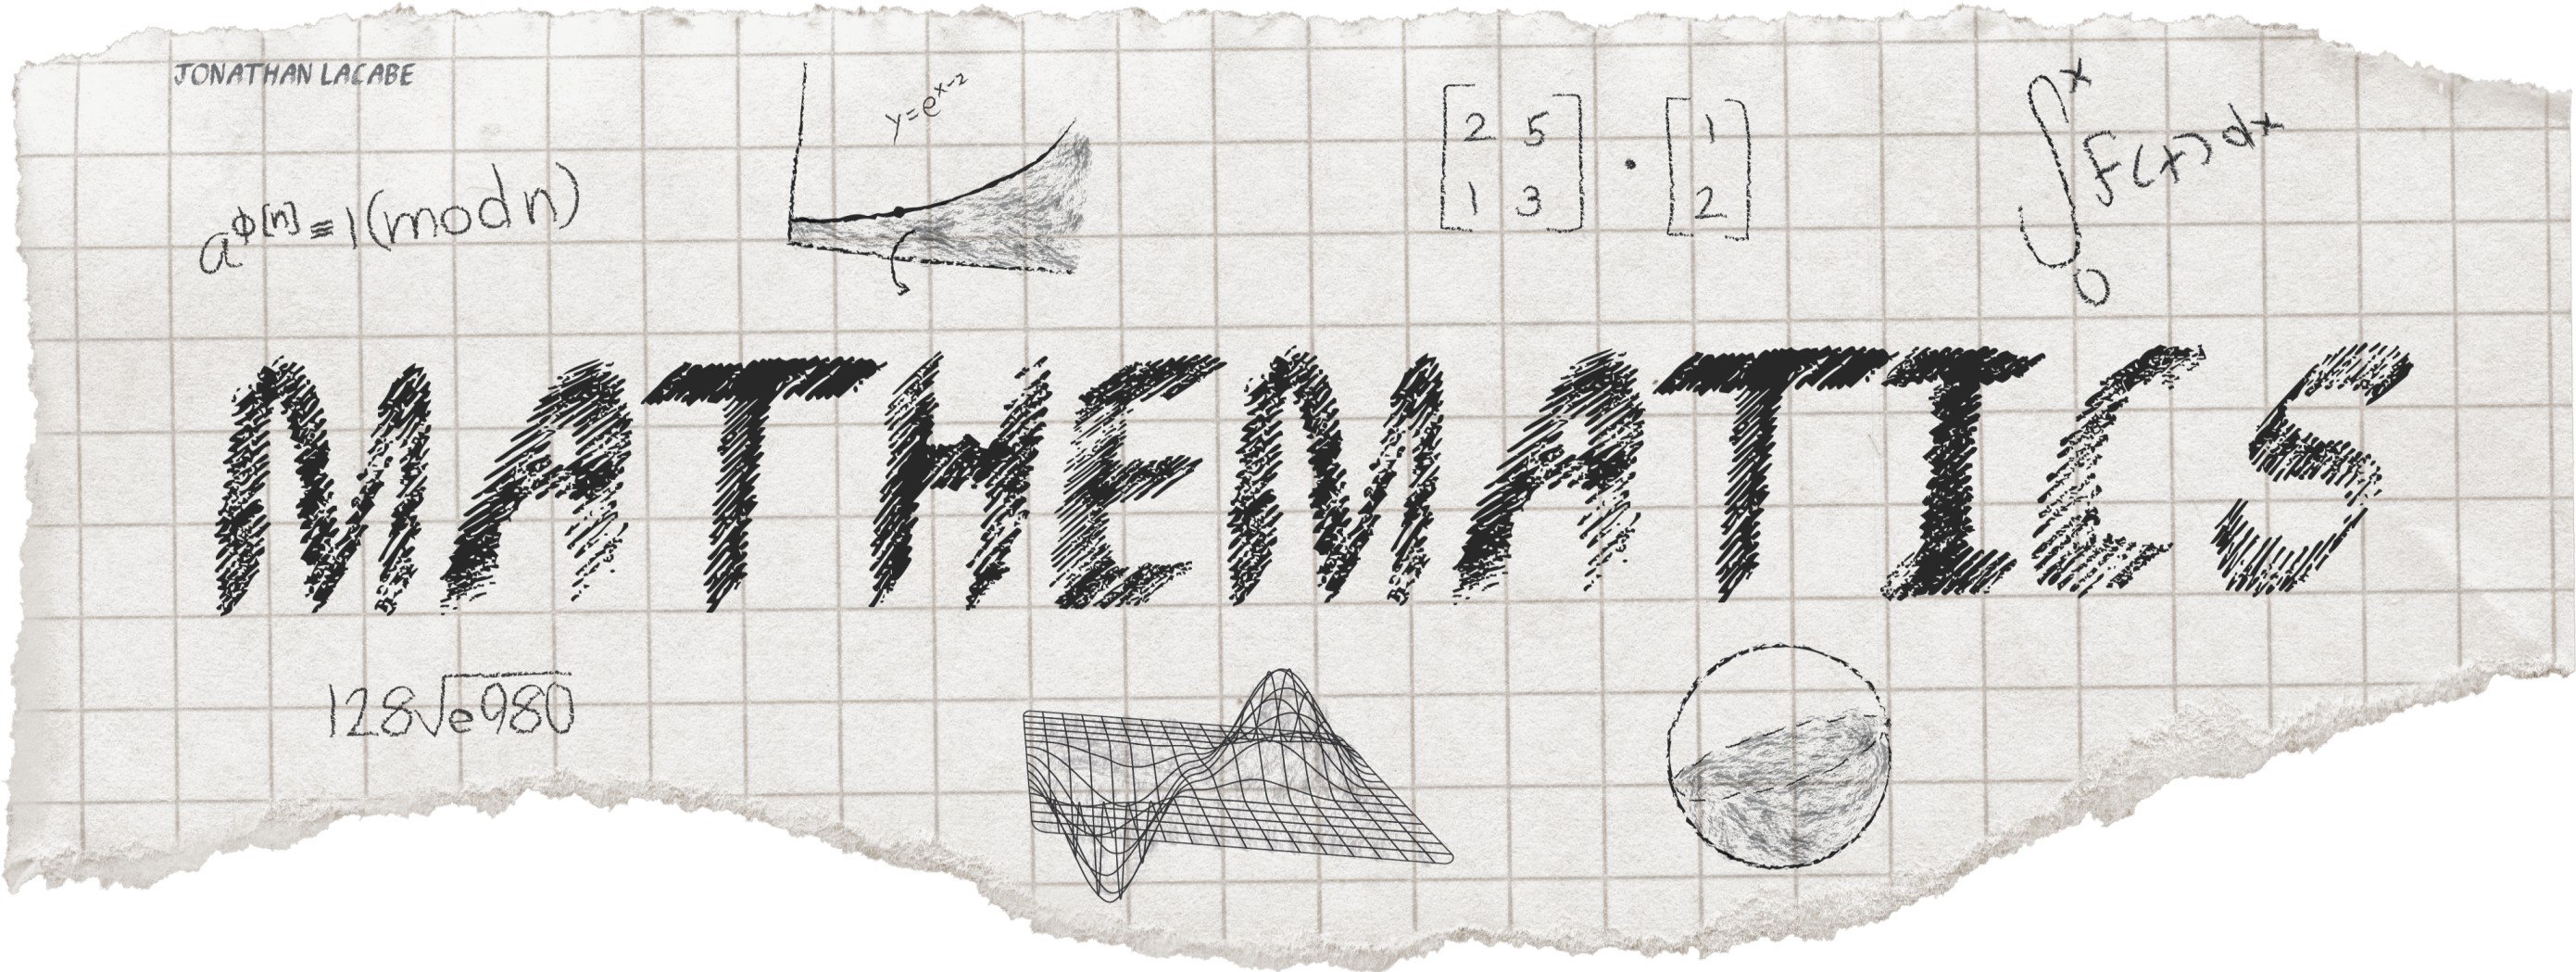 JONATHAN LACABE
y=e^x-2
[2 5
1 3] · [1
2]
∫₀ˣ F(x) dx
a^ϕ[n] ≡ 1(mod n)
MATHEMATICS
128√e980